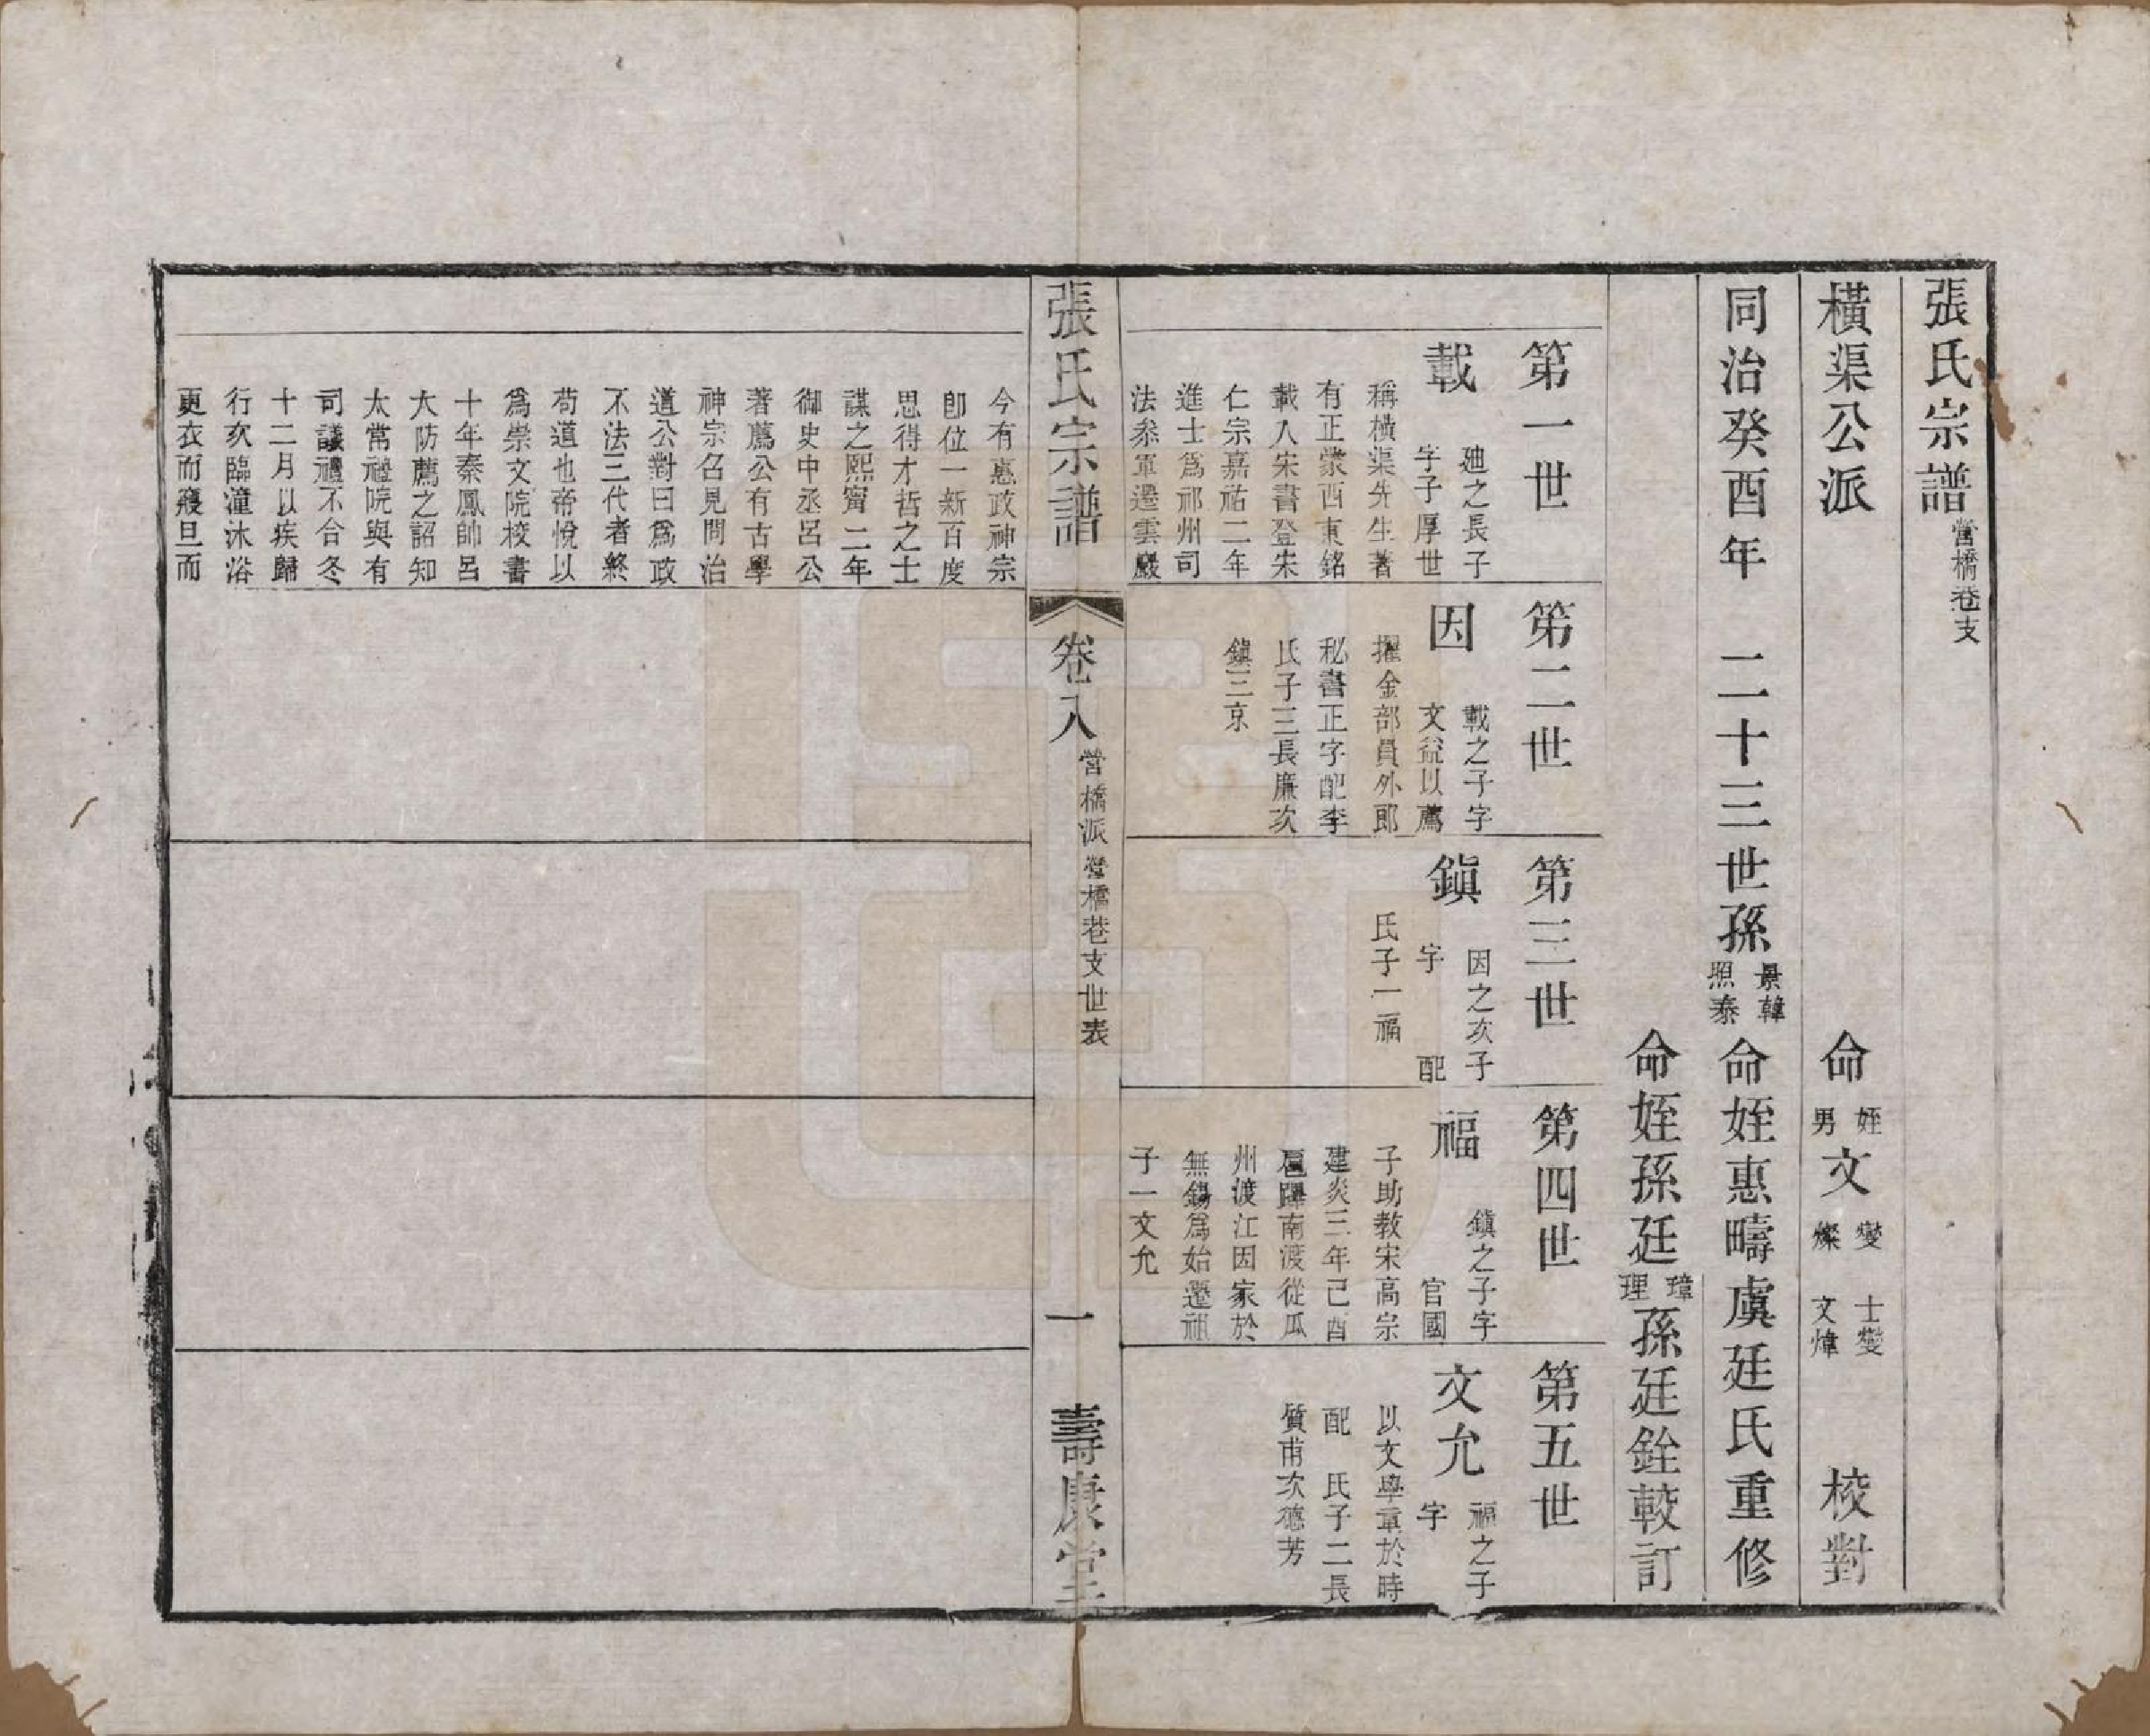 張氏宗譜 營橋巷支
橫渠公派
命 姪男 文 燮燦 士燮文煒 校對
同治癸酉年 二十三世孫 景韓照泰 命姪惠疇虞廷氏重修
命姪孫廷 璋理 孫廷銓較訂
第一世
載
廸之長子
字子厚世
稱橫渠先生著
有正蒙西東銘
載入宋書登朱
仁宗嘉祐二年
進士爲祁州司
法叅軍遷雲巖
第二世
因
載之子字
文益以薦
擢金部員外郎
秘書正字配李
氏子三長廉次
鎮三京
第三世
鎮
因之次子
字 配
氏子一福
第四世
福
鎮之子字
官國
子助教宋高宗
建炎三年己酉
扈蹕南渡從瓜
州渡江因家於
無錫爲始遷祖
子一文允
第五世
文允
福之子
字
以文學重於時
配 氏子二長
質甫次德芳
張氏宗譜
卷八 營橋派營橋巷支世表
一 壽康堂
今有惠政神宗
卽位一新百度
思得才哲之士
謀之熙甯二年
御史中丞呂公
著薦公有古學
神宗召見問治
道公對曰爲政
不法三代者終
苟道也帝悅以
爲崇文院校書
十年秦鳳帥呂
大防薦之詔知
太常禮院與有
司議禮不合冬
十二月以疾歸
行次臨潼沐浴
更衣而寢旦而